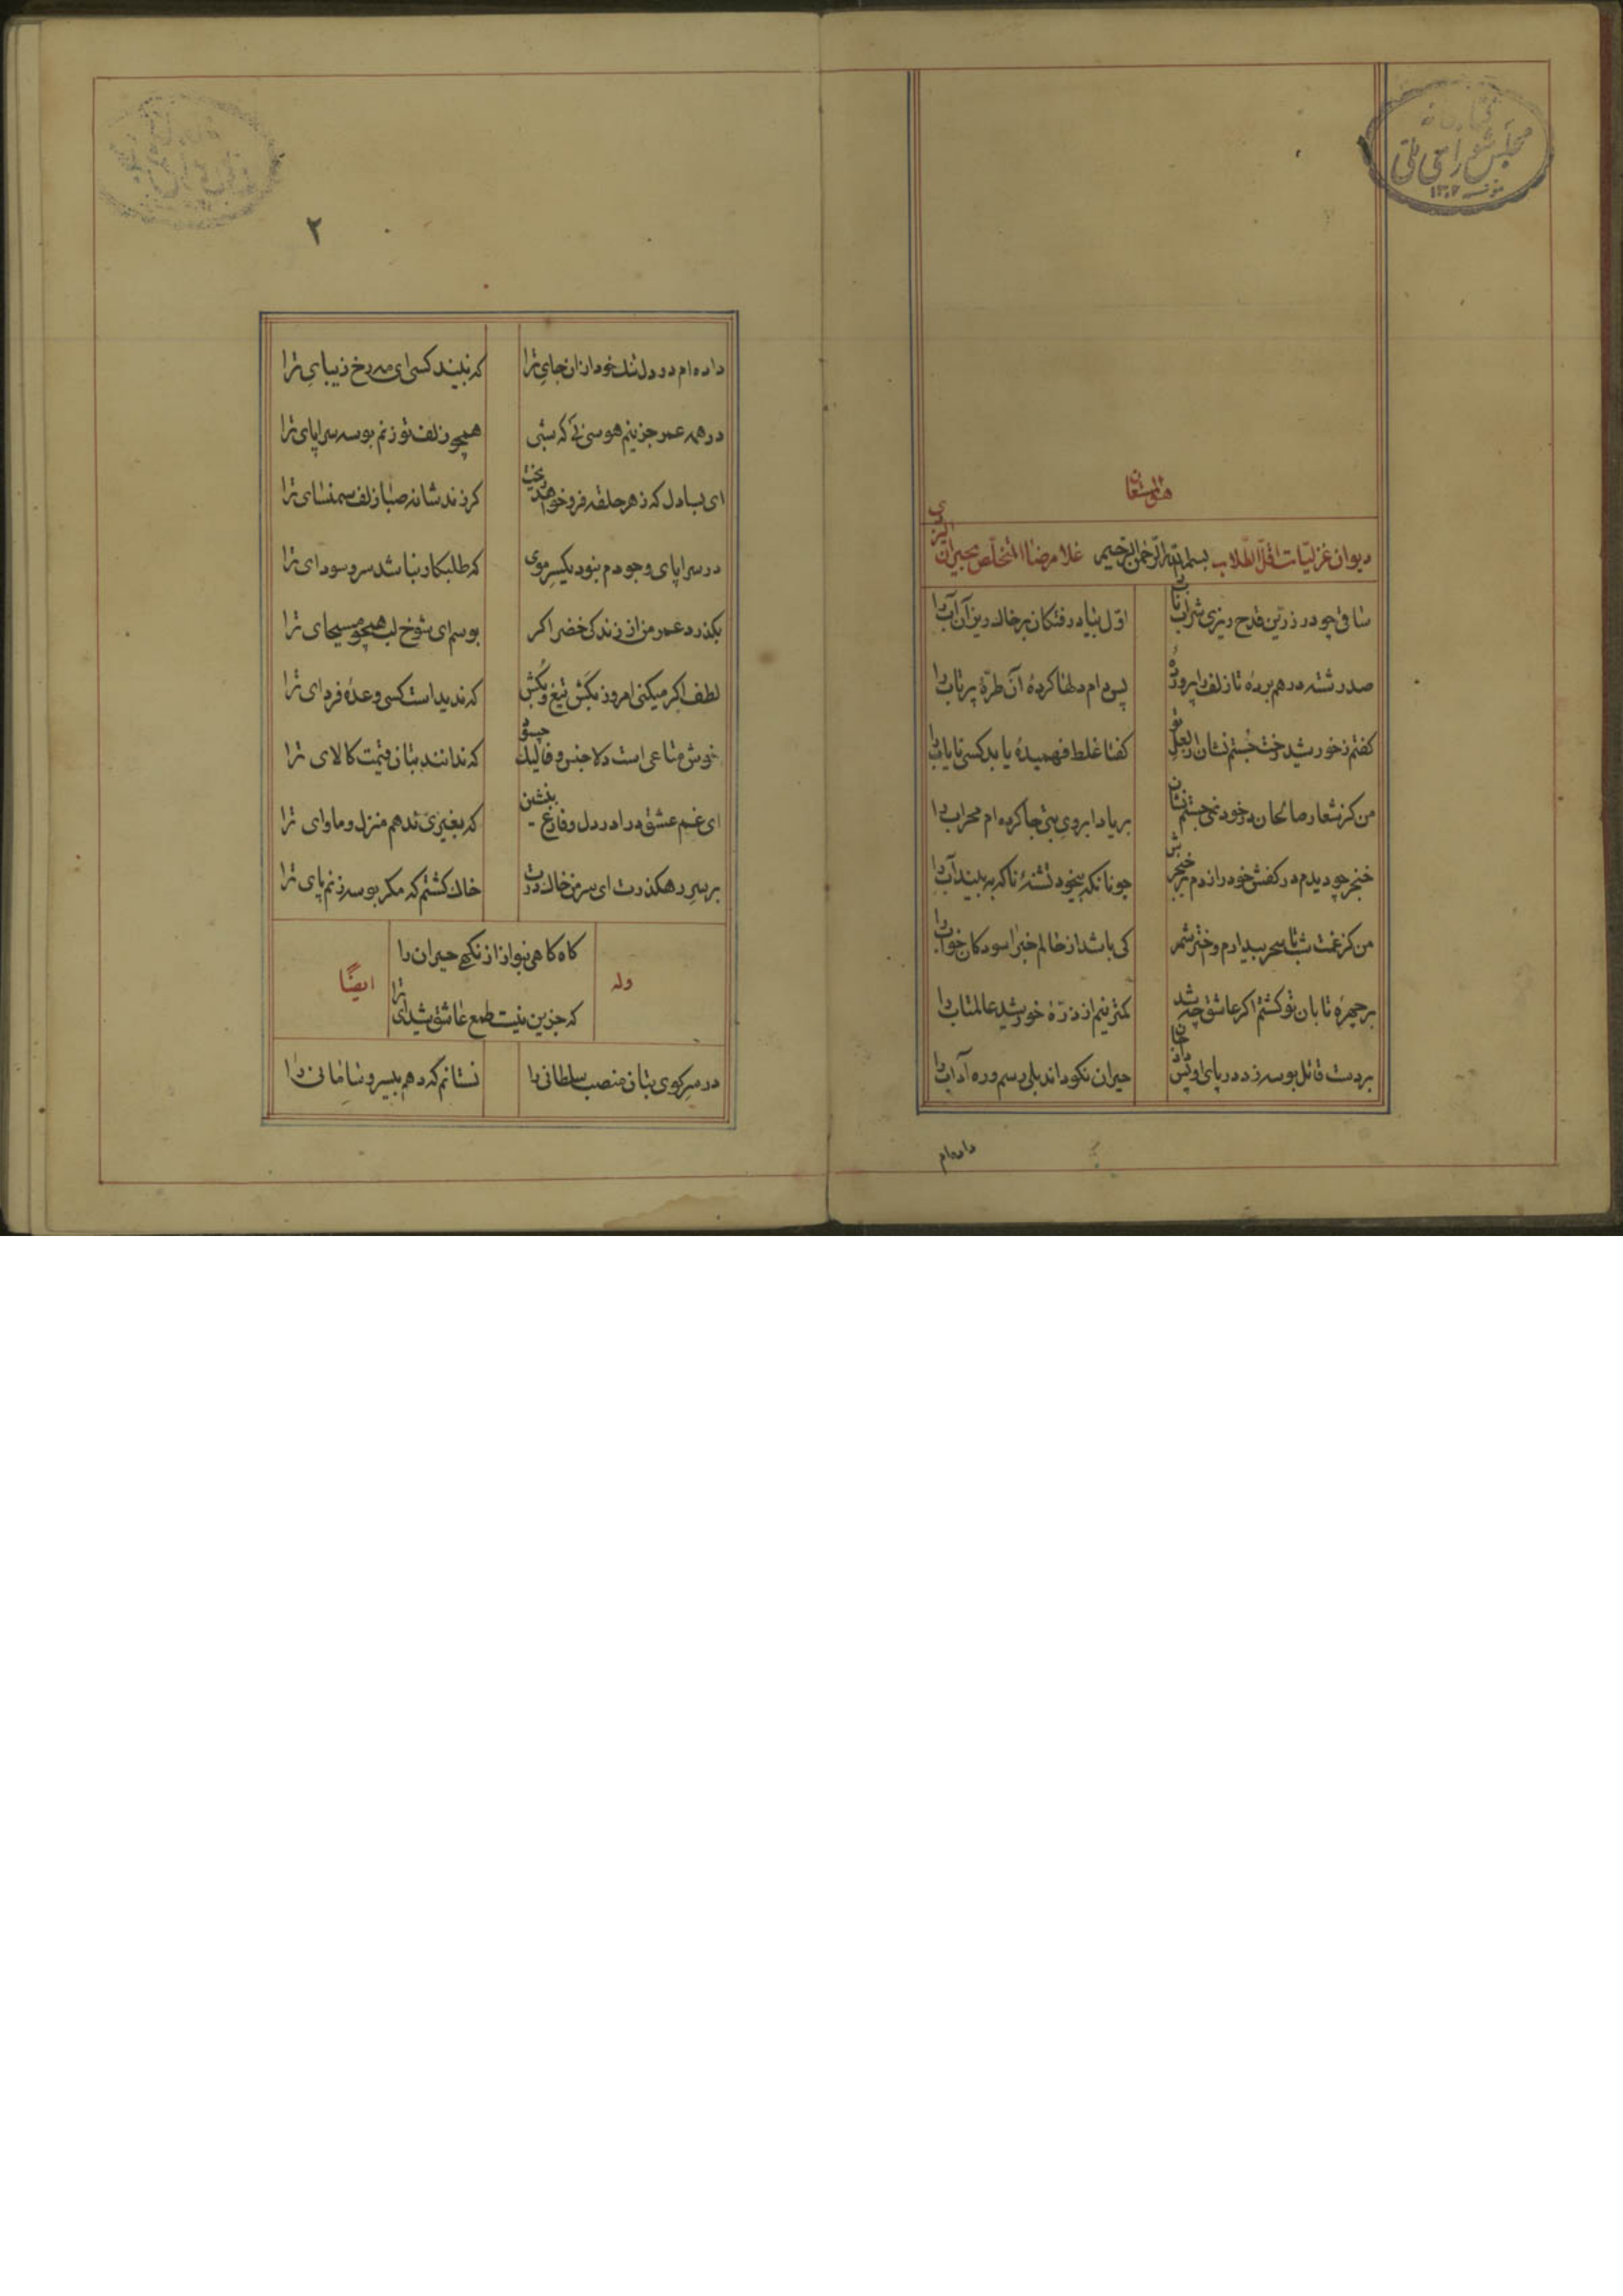 هو المستعان
دیوان غزلیات اقل الطلاب بسم الله الرحمن الرحیم غلامرضا المتخلص بحیران
ساقی چو در زرین قدح ریزی شراب ناب را اول بیاد رفتکان بر خاک ریز آن آب را
صد رشته در هم برده تا زلف را پس دام دلها کردهٔ آن طرهٔ پرتاب را
کفتم ز خورشید رخت جستم نشان لعل تو کفتا غلط فهمیدهٔ یابد کسی نایاب را
من کز شعار صالحان در خود نمی جستم نشان بر یاد ابروی بتی جا کرده ام محراب را
خنجر چو دیدم در کفش خود را زدم بر خنجرش چونانکه بیخود تشنهٔ ناکه به بیند آب را
من کز غمت شب تا سحر بیدارم و اختر شمر کی باشد از حالم خبر آسودکان خواب را
بر چهرهٔ تابان تو کشتم اکر عاشق چه شد کمتر نیم از ذرهٔ خورشید عالمتاب را
بر دست قاتل بوسه زد در پای او پس داد جان حیران نکو داند بلی رسم و ره آداب را
داده‌ام
مجلس شورای ملی
۲
داده‌ام در دل تنک خود از ان جای ترا که نبیند کسی ای مه رخ زیبای ترا
در همه عمر جز ینم هوسی نی که شبی همچو زلف تو زنم بوسه سراپای ترا
ای بسا دل که ز هر حلقه فرو خواهد ریخت کر زند شانه صبا زلف سمنسای ترا
در سراپای وجودم نبود یکسر موی که طلبکار نباشد سر و سودای ترا
بکذرد عمر من از زندکی خضر اکر بوسم ای شوخ لب همچو مسیحای ترا
لطف اکر میکنی امروز بکش تیغ و بکش که ندید است کسی وعدهٔ فردای ترا
خوش متاعی است دلا جنس وفا لیک چه سود که ندانند بتان قیمت کالای ترا
ای غم عشق درا در دل و فارغ بنشین که بغیری ندهم منزل و ماوای ترا
بر سر رهکذرت ای سر من خاک درت خاک کشتم که مکر بوسه زنم پای ترا
کاه کاهی بنواز از نکهی حیران را
که جزین نیست طمع عاشق شیدای ترا
وله ایضا
در سر کوی بتان منصب سلطانی را نستانم که دهم بیسر و سامانی را